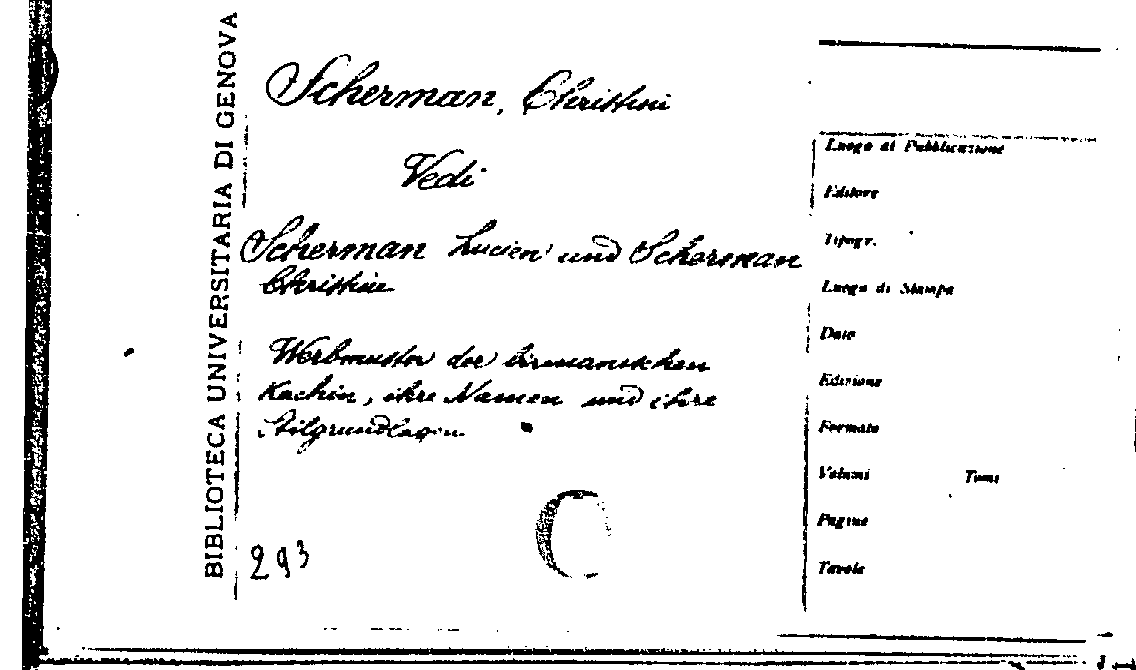 BIBLIOTECA UNIVERSITARIA DI GENOVA
Scherman, Christini
Vedi
Scherman Lucien und Scherman
Christine
Werbmuster der birmanischen
Kachin, ihre Namen und ihre
Stilgrundlagen
293
C
Luogo di Pubblicazione
Editore
Tipogr.
Luogo di Stampa
Date
Edizione
Formato
Volumi Tomi
Pagine
Tavole